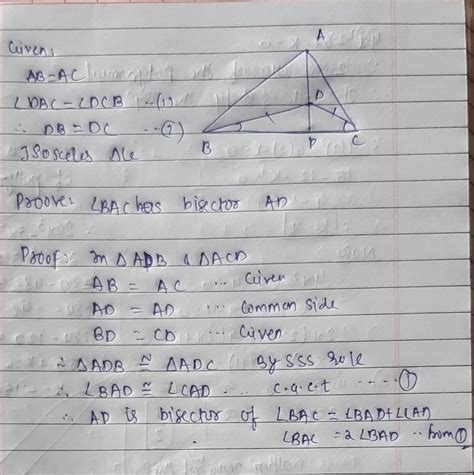 Given:
A
AB = AC
∠DBC = ∠DCB ...(1)
D
∴ DB = DC ...(2)
B
P
C
Isosceles Δle
Proove: ∠BAC has bisector AD
Proof: In ΔADB & ΔACD
AB = AC ... Given
AD = AD ... Common side
BD = CD ... Given
∴ ΔADB ≅ ΔADC By SSS rule
∴ ∠BAD ≅ ∠CAD . c.a.c.t ---- ①
∴ AD is bisector of ∠BAC = ∠BAD+∠CAD
∠BAC = 2∠BAD ... from ①